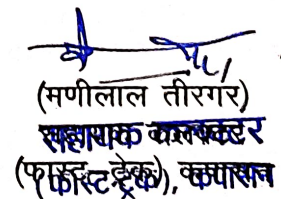 (मणीलाल तीरगर)
सहायक कलक्टर
(फास्ट ट्रेक), कपासन